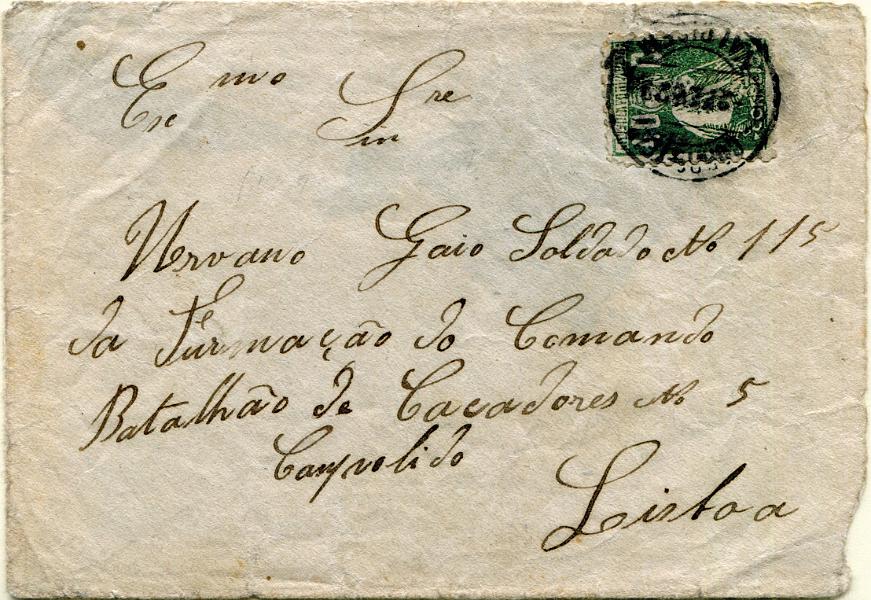 Exc mo Sin re
Nervano Gaio Soldado No 115
da Furmação do Comando
Batalhão de Cacadores No 5
Campolido
Lisboa